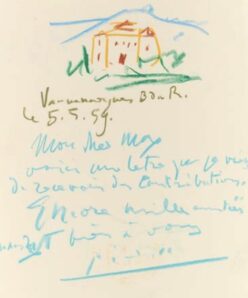 Vauvenargues B du R.
le 5.5.59.
Mon cher Max
voici une lettre que je viens
de recevoir des Contributions.
Encore mille amitiés
et bien à vous
Picasso